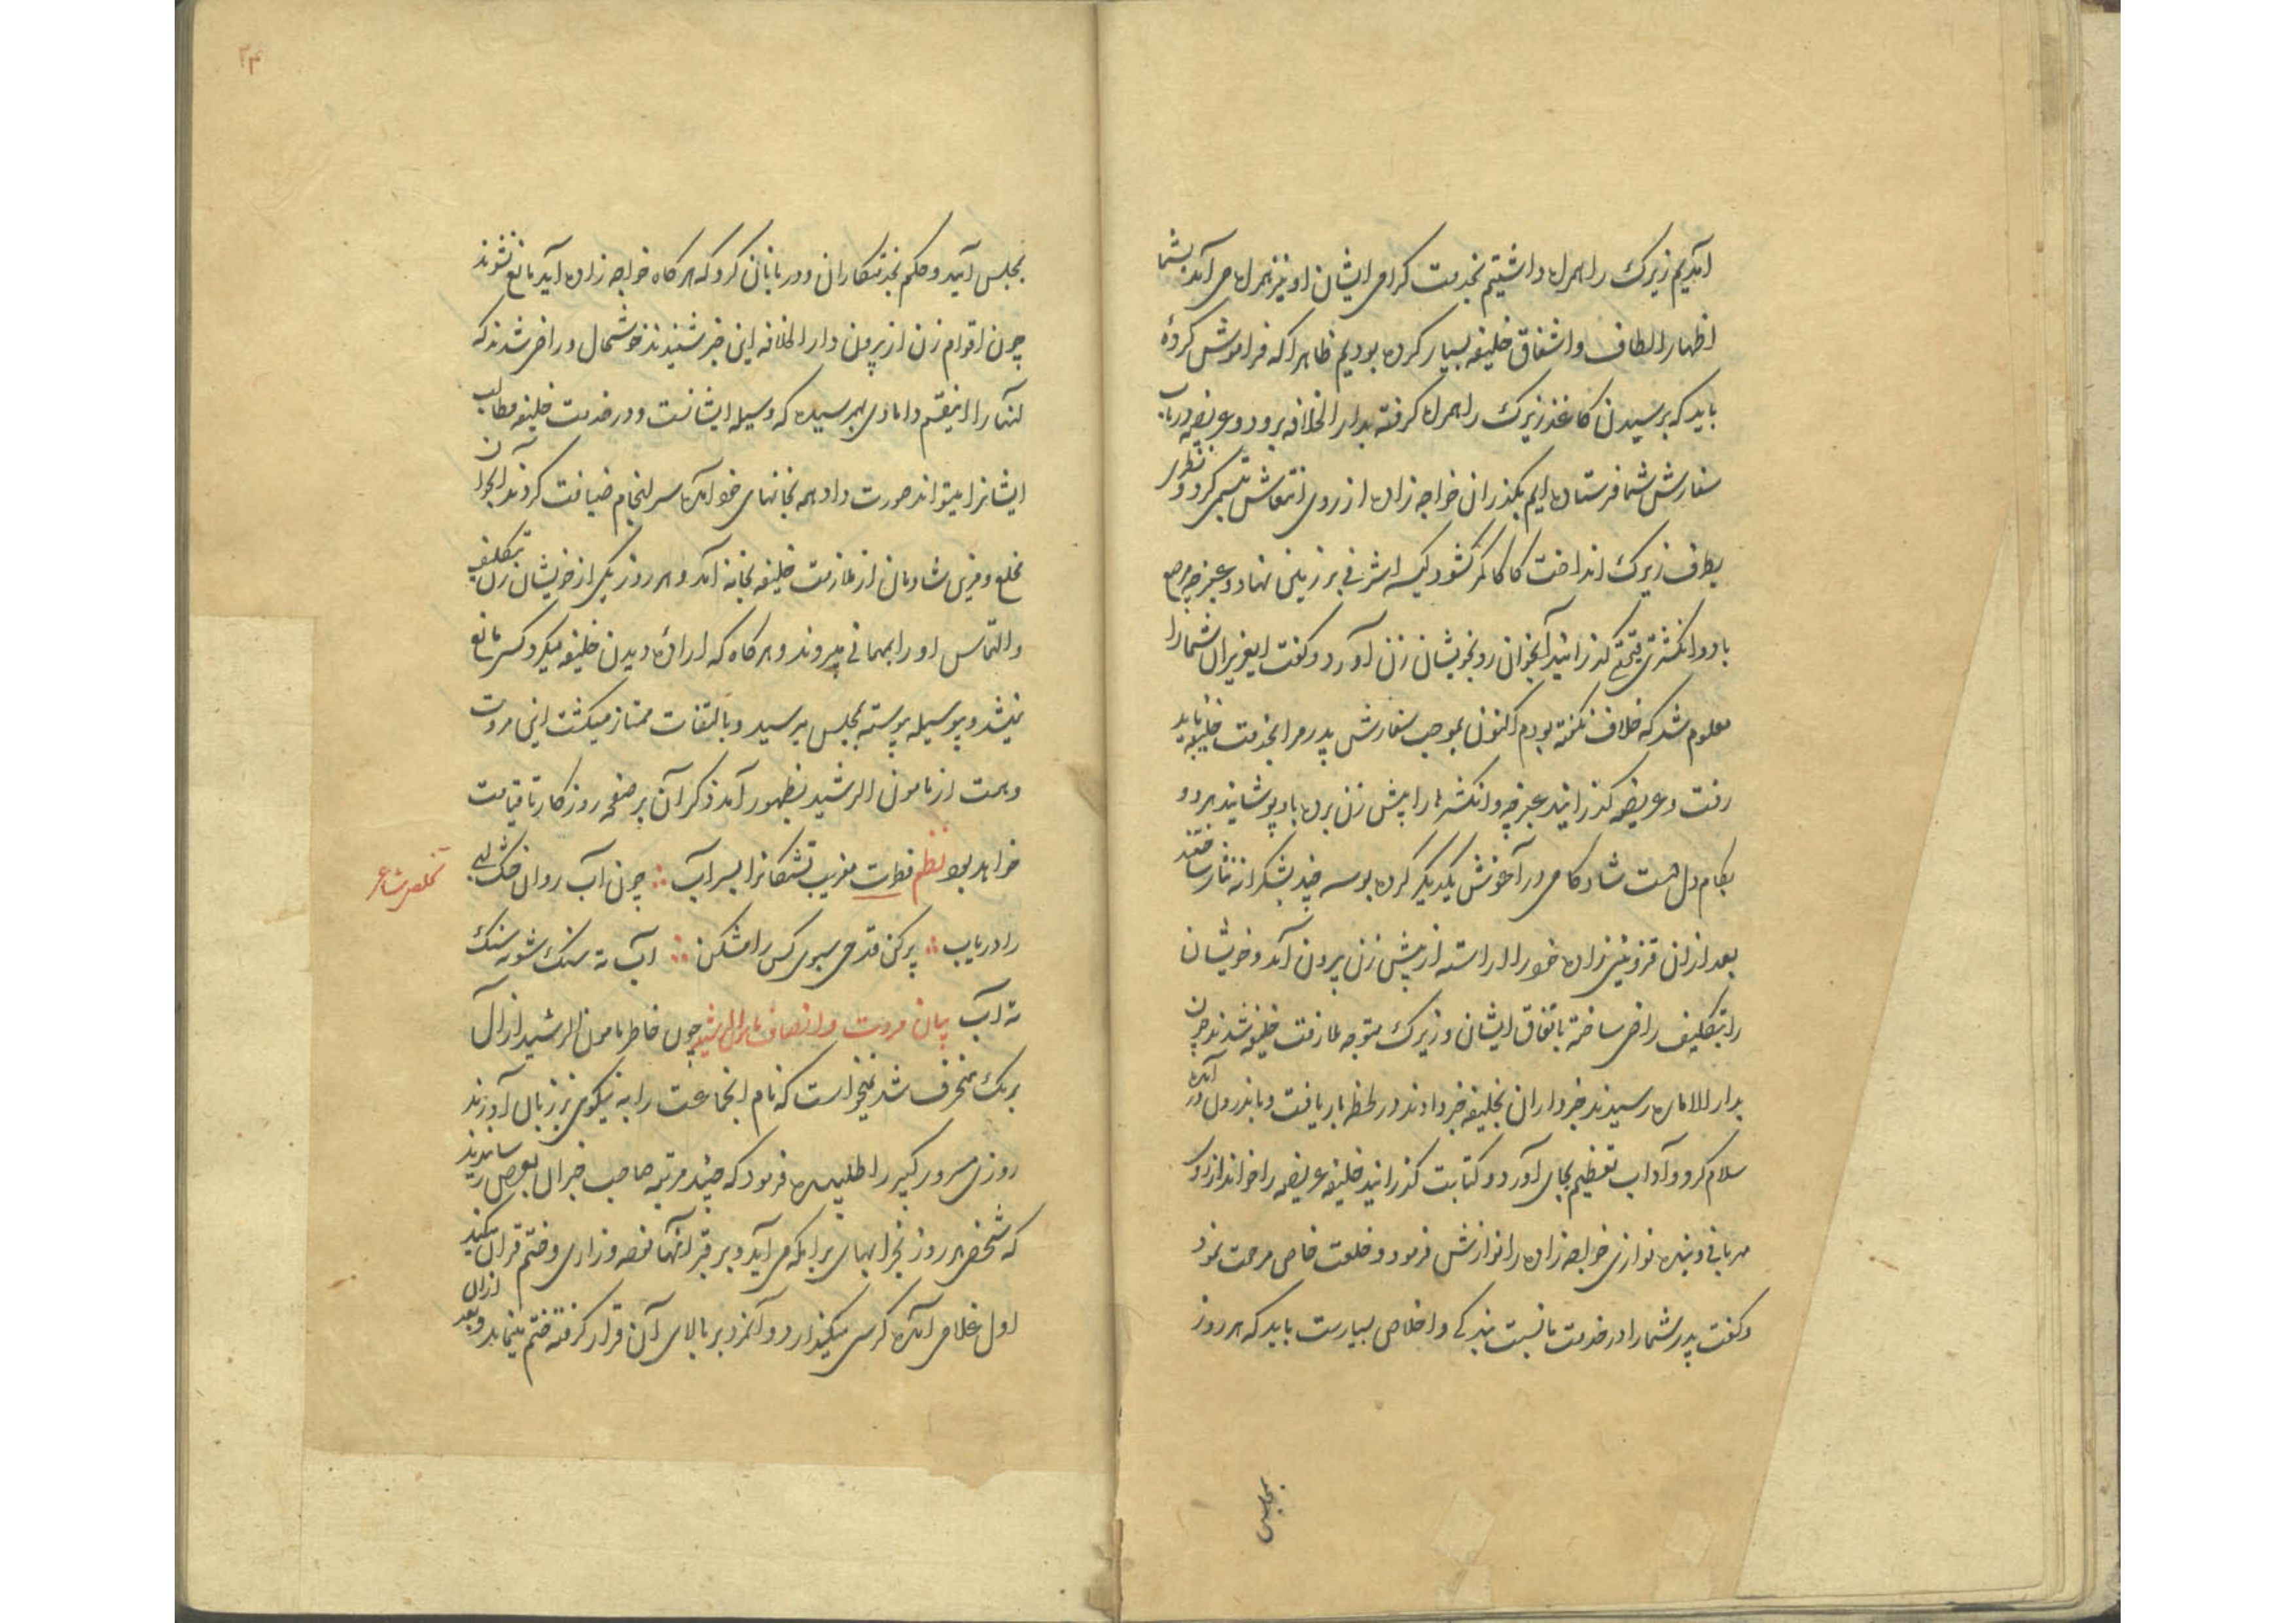 آمدیم زیرک را همراه داشتیم بخدمت گرامی ایشان او نیز همراه می آمد بشما
اظهار الطاف و اشفاق خلیفه بسیار کرده بودیم ظاهرا که فراموش کردهٔ
باید که برسیدن کاغذ زیرک را همراه گرفته بدار الخلافه برود و عریضه در باب
سفارش شما فرستاده ایم بگذران خواجه زاده از روی انتعاش تبسمی کرد و نظری
بطرف زیرک انداخت کاکا کمر کشود کیسه اشرفی بر زمین نهاد و عنبرچه مرصع
با دو انگشتری قیمتی گذرانید آنجوان رو بخویشان زن آورد و گفت ای عزیزان شما را
معلوم شد که خلاف نگفته بودم اکنون بموجب سفارش پدر مرا بخدمت خلیفه باید
رفت و عریضه گذرانید عنبرچه و انگشتر ها را پیش زن برده باو پوشانید هر دو
بکام دل دست شادکامی در آغوش یکدیگر کرده بوسه چند بشکرانه نثار ساختند
بعد ازان قزوینی زاده خود را اراسته از پیش زن بیرون آمد و خویشان
را بتکلیف راضی ساخته باتفاق ایشان و زیرک متوجه ملازمت خلیفه شدند چون
بدار الاماره رسیدند خبرداران بخلیفه خبر دادند در لحظه بار یافت و باندرون در آمده
سلام کرد و آداب تعظیم بجای آورد و کتابت گذرانید خلیفه عریضه را خواند از روی
مهربانی و بنده نوازی خواجه زاده را نوازش فرمود و خلعت خاص مرحمت نمود
و گفت پدر شما را در خدمت ما نسبت بندگی و اخلاص بسیارست باید که هر روز
بمجلس
۲۴
بمجلس آیید و حکم بخدمتکاران و دربانان کرد که هر گاه خواجه زاده آید مانع نشوند
چون اقوام زن از بیرون دار الخلافه این خبر شنیدند خوشحال و راضی شدند که
آنها را اینقسم دامادی بهم رسیده که وسیله ایشانست و در خدمت خلیفه مطالب
ایشانرا میتواند صورت داد همه بخانهای خود آمده سر انجام ضیافت کردند آنجوان
مخلع و مزین شادمان از ملازمت خلیفه بخانه آمد و هر روز یکی از خویشان زن بتکلیف
و التماس او را بمهمانی میبردند و هر گاه که ارادهٔ دیدن خلیفه میکرد کسی مانع
نمیشد و بوسیله پیوسته بمجلس میرسید و بالتفات ممتاز میگشت این مروت
و همت از مامون الرشید بظهور آمد ذکر آن بر صفحه روزگار تا قیامت
خواهد بود نظم فطرت مغریب تشنگانرا بسراب ∴ چون آب روان خشک لبی
تخلص شاعر
را دریاب ∴ پر کن قدحی سبوی کس را مشکن ∴ آب ته سنگ شو نه سنگ
ته آب بیان مروت و انصاف مامون الرشید چون خاطر مامون الرشید از آل
برمک منحرف شد نمیخواست که نام انجماعت را به نیکوی بر زبان آورند
روزی مسرور کبیر را طلبیده فرمود که چند مرتبه صاحب خبران بعرض رسانیدند
که شخصی هر روز بخرابهای برامکه می آید و بر قبر آنها نوحه و زاری و ختم قران میکند
اول غلامی آمده کرسی میگذارد و آنمرد بر بالای آن قرار گرفته ختم مینماید و بعد ازان